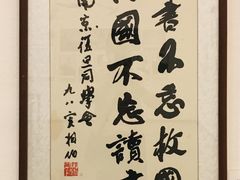 書不忘救國
國不忘讀書
南京復旦同學會
九八叟相伯